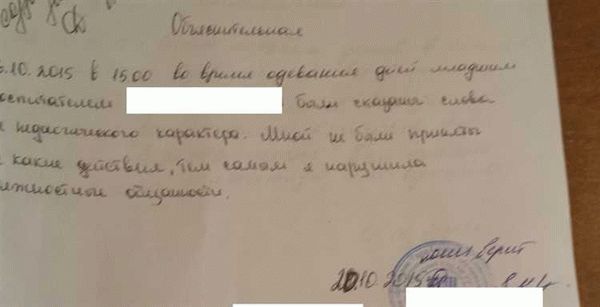 Объяснительная
.10.2015 в 1500 во время одевания детей младшим
оспитателем были сказаны слова
е педагогического характера. Мной не были приняты
и какие действия, тем самым я нарушила
олжностные обязанности.
20.10.2015